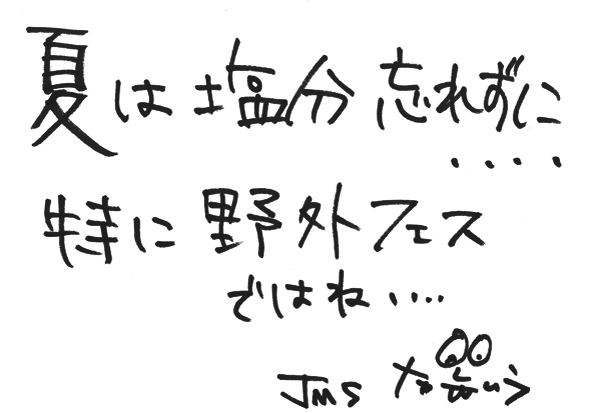 夏は塩分忘れずに
‥‥
特に野外フェス
ではね‥‥
JMS